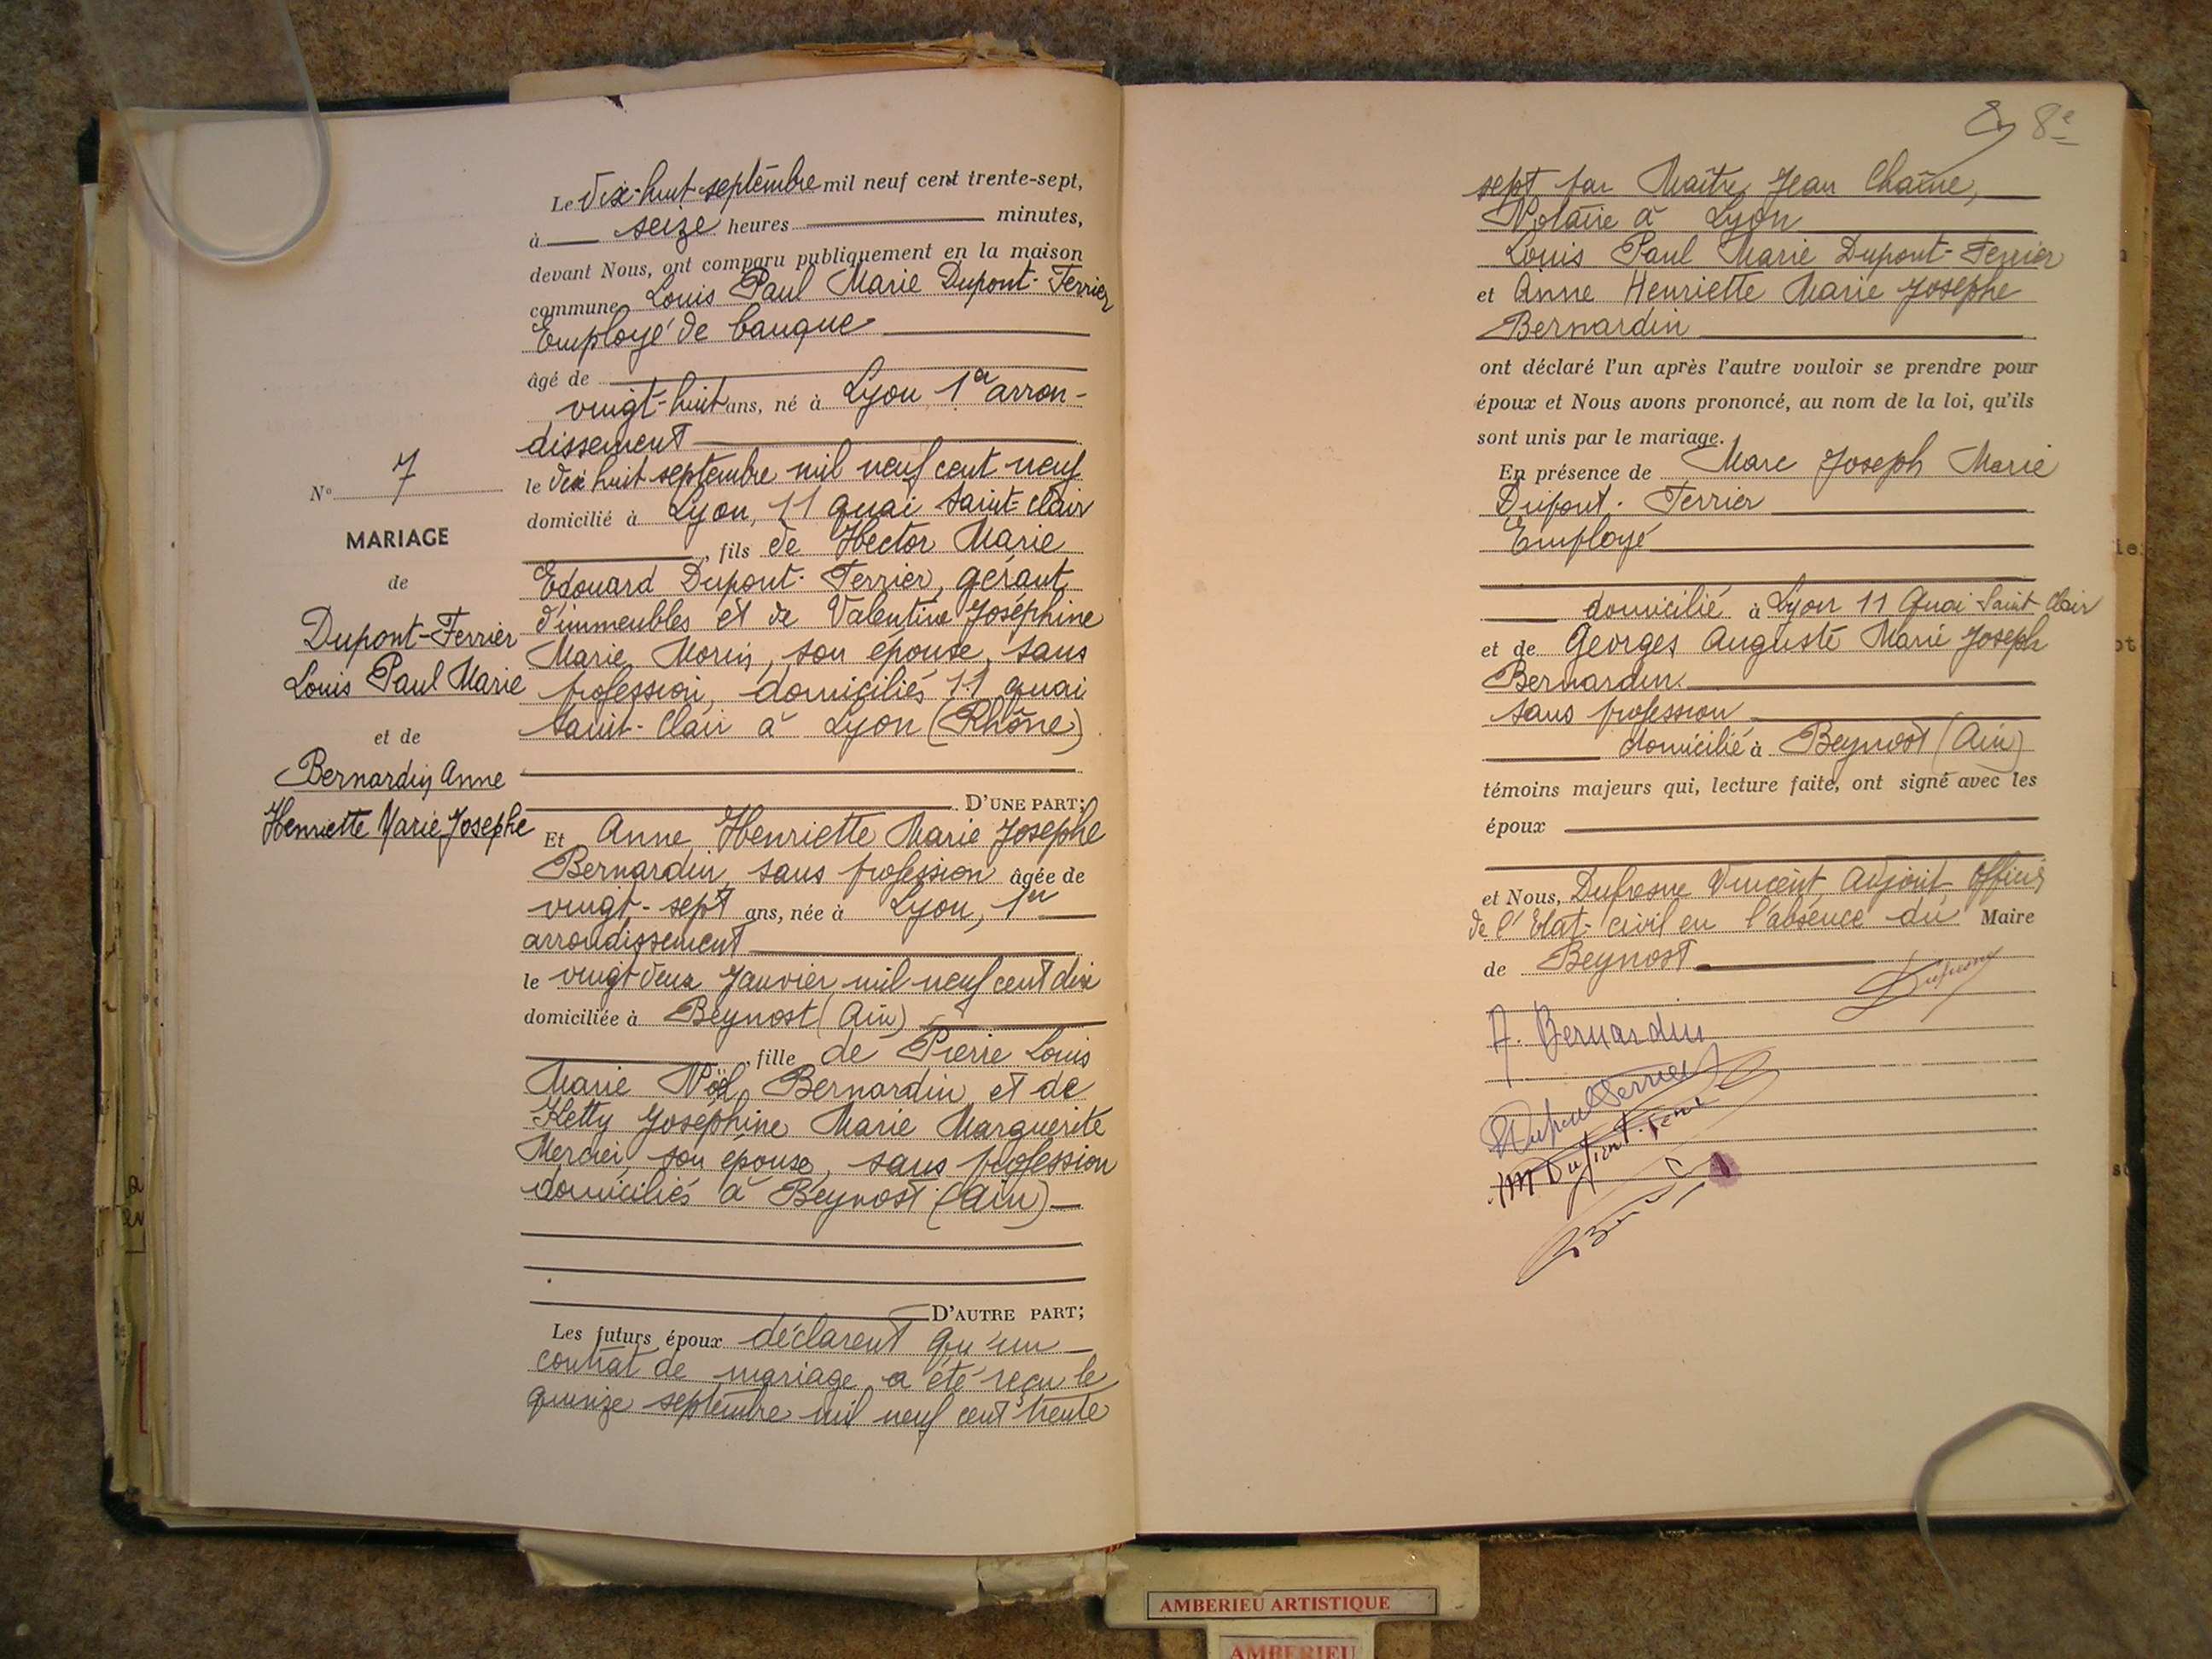 Le dix-huit septembre mil neuf cent trente-sept,
à seize heures minutes,
devant Nous, ont comparu publiquement en la maison
commune Louis Paul Marie Dupont-Ferrier
Employé de banque
âgé de
vingt-huit ans, né à Lyon 1er arron-
dissement
le dix huit septembre mil neuf cent neuf
domicilié à Lyon, 11 quai Saint-Clair
, fils de Hector Marie
Edouard Dupont-Ferrier, gérant
d'immeubles et de Valentine Joséphine
Marie Morin, son épouse, sans
profession, domiciliés 11 quai
Saint-Clair à Lyon (Rhône)
D'UNE PART;
Et Anne Henriette Marie Josephe
Bernardin, sans profession âgée de
vingt-sept ans, née à Lyon, 1er
arrondissement
le vingt deux Janvier mil neuf cent dix
domiciliée à Beynost (Ain)
, fille de Pierre Louis
Marie Noël Bernardin et de
Ketty Joséphine Marie Marguerite
Mercier, son épouse, sans profession
domiciliés à Beynost (Ain)
D'AUTRE PART;
Les futurs époux déclarent qu'un
contrat de mariage a été reçu le
quinze septembre mil neuf cent trente
N° 7
MARIAGE
de
Dupont-Ferrier
Louis Paul Marie
et de
Bernardin Anne
Henriette Marie Josephe
8e
sept par Maître Jean Chaîne,
Notaire à Lyon
Louis Paul Marie Dupont-Ferrier
et Anne Henriette Marie Josephe
Bernardin
ont déclaré l'un après l'autre vouloir se prendre pour
époux et Nous avons prononcé, au nom de la loi, qu'ils
sont unis par le mariage.
En présence de Marc Joseph Marie
Dupont-Ferrier
Employé
domicilié à Lyon 11 Quai Saint Clair
et de Georges Auguste Marie Joseph
Bernardin
sans profession
domicilié à Beynost (Ain)
témoins majeurs qui, lecture faite, ont signé avec les
époux
et Nous, Dufresne Vincent, Adjoint Officier
de l'Etat-civil en l'absence du Maire
de Beynost
Dufresne
A. Bernardin
Dupont Ferrier
M Dupont-Ferrier
AMBERIEU ARTISTIQUE
AMBERIEU